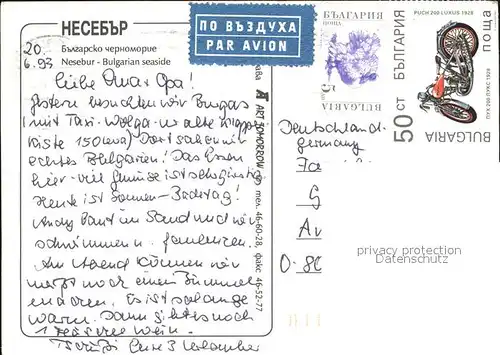 НЕСЕБЪР
20.
6.93
Българско черноморие
Nesebur - Bulgarian seaside
ПО ВЪЗДУХА
PAR AVION
БЪЛГАРИЯ
BULGARIA
50 СТ
БЪЛГАРИЯ
поща
PUCH 200 LUXUS 1928
ПУХ 200 ЛУКС 1928
BULGARIA
Liebe Oma + Opa!
Gestern besuchten wir Burgas
(mit Taxi-Wolga - ne alte Klapper
kiste 150 Lewa) Dort sahen wir
echtes Bulgarien! Das Essen
hier - viel Gemüse ist
Heute ist Sonnen-Badetag!
Andy baut im Sand und wir
schwimmen + faulenzen.
Am Abend können wir
noch einen Bummel
machen. Es ist so lange
warm. Dann gibt es noch
1 Wein.
Tschüß Eure 3 Urlauber
ART TOMORROW
тел. 46-60-28, факс 46-52-77
Deutschland-
Germany
Fa
G
Av
0-80
privacy protection
Datenschutz